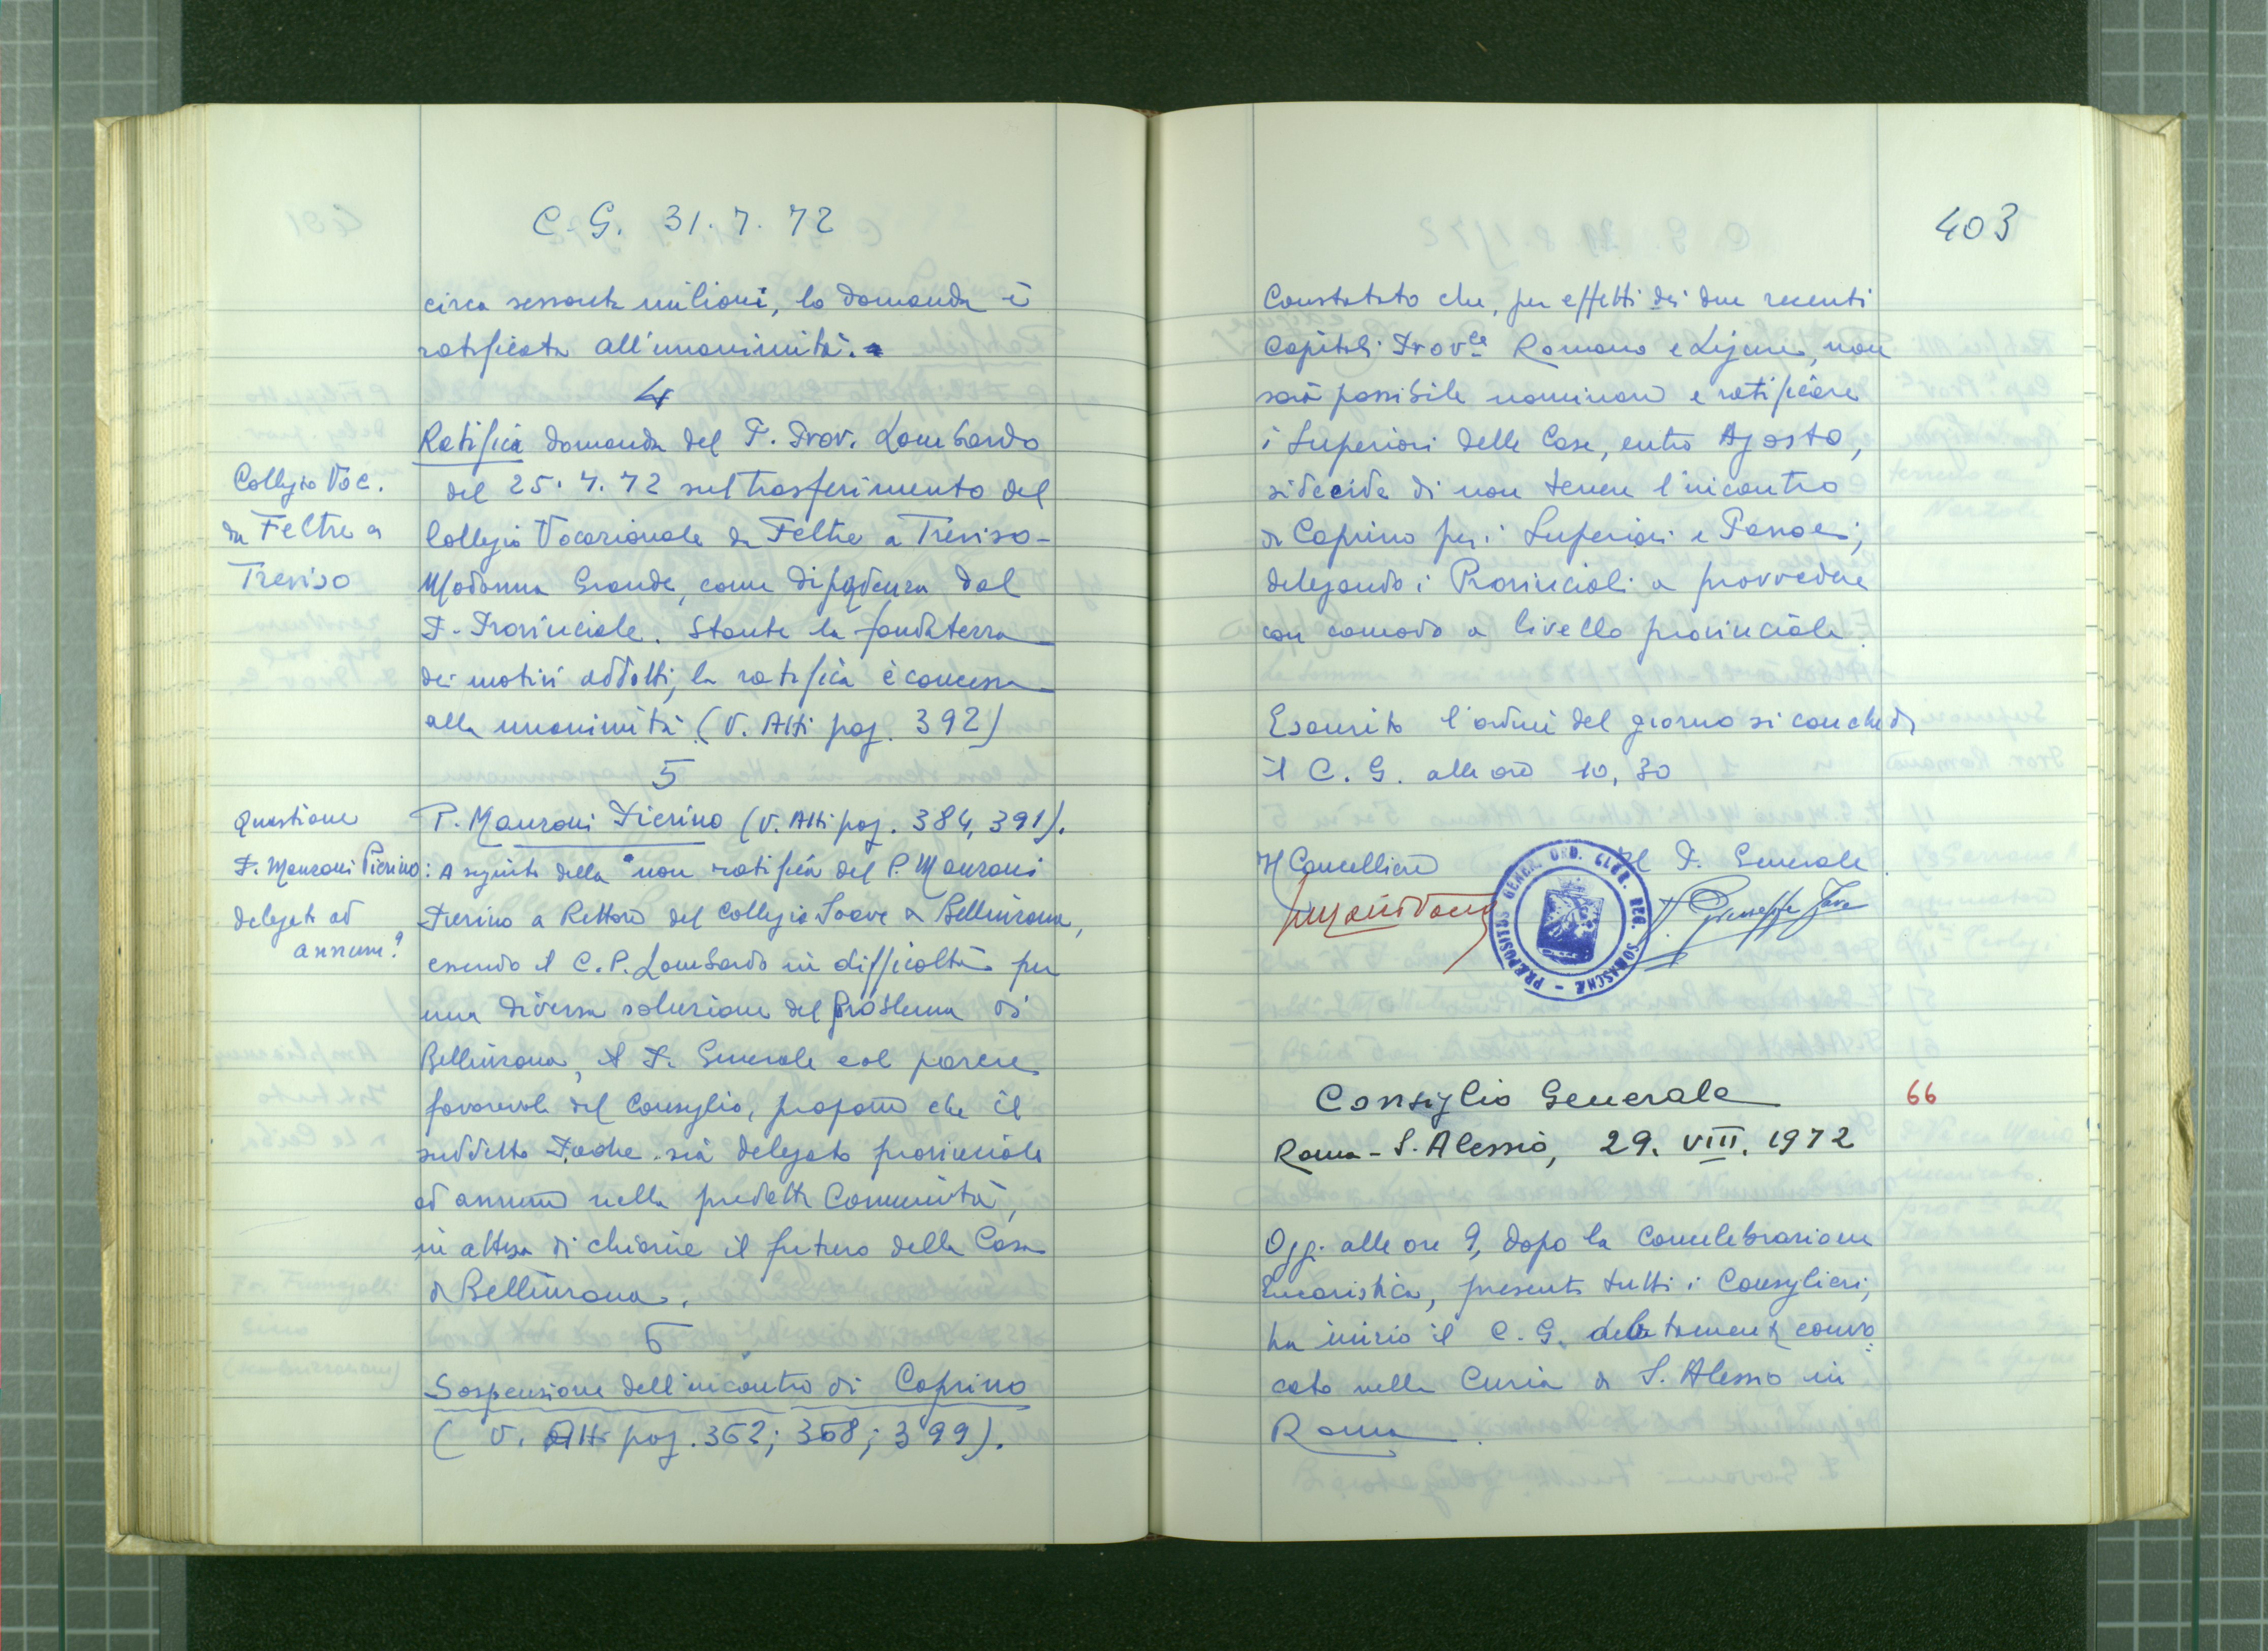 C. G. 31. 7. 72
circa sessanta milioni, la domanda è
ratificata all'unanimità.
4
Ratifica domanda del P. Prov. Lombardo
Collegio Voc.
del 25. 7. 72 sul trasferimento del
da Feltre a
Collegio Vocazionale da Feltre a Treviso-
Treviso
Madonna Grande, come dipendenza dal
P. Provinciale. Stante la fondatezza
dei motivi addotti, la ratifica è concessa
alla unanimità (V. Atti pag. 392)
5
Questione
P. Manzoni Pierino (V. Atti pag. 384, 391).
P. Manzoni Pierino
: A seguito della non ratifica del P. Manzoni
delegato ad
Pierino a Rettore del Collegio Soave di Bellinzona,
annum?
essendo il C. P. Lombardo in difficoltà per
una diversa soluzione del problema di
Bellinzona, il P. Generale col parere
favorevole del Consiglio, propone che il
suddetto Padre sia delegato provinciale
ad annum nella predetta Comunità,
in attesa di chiarire il futuro della Casa
di Bellinzona.
6
Sospensione dell'incontro di Caprino
(V. Atti pag. 362; 368; 399).
403
Constatato che, per effetti dei due recenti
Capitoli Prov.li Romano e Ligure, non
sarà possibile nominare e ratificare
i Superiori delle Case, entro Agosto,
si decide di non tenere l'incontro
di Caprino per i Superiori e Parroci,
delegando i Provinciali a provvedere
con comodo a livello provinciale.
Esaurito l'ordine del giorno si conclude
il C. G. alle ore 10,30
Il Cancelliere
Il P. Generale
P. Giuseppe Fava
PRÆPOSITUS GENER. ORD. CLER. REG. SOMASCHÆ
Consiglio Generale
66
Roma - S. Alessio, 29. VIII. 1972
Oggi alle ore 9, dopo la Concelebrazione
Eucaristica, presenti tutti i Consiglieri,
ha inizio il C. G. convo:
cato nella Curia di S. Alessio in
Roma.